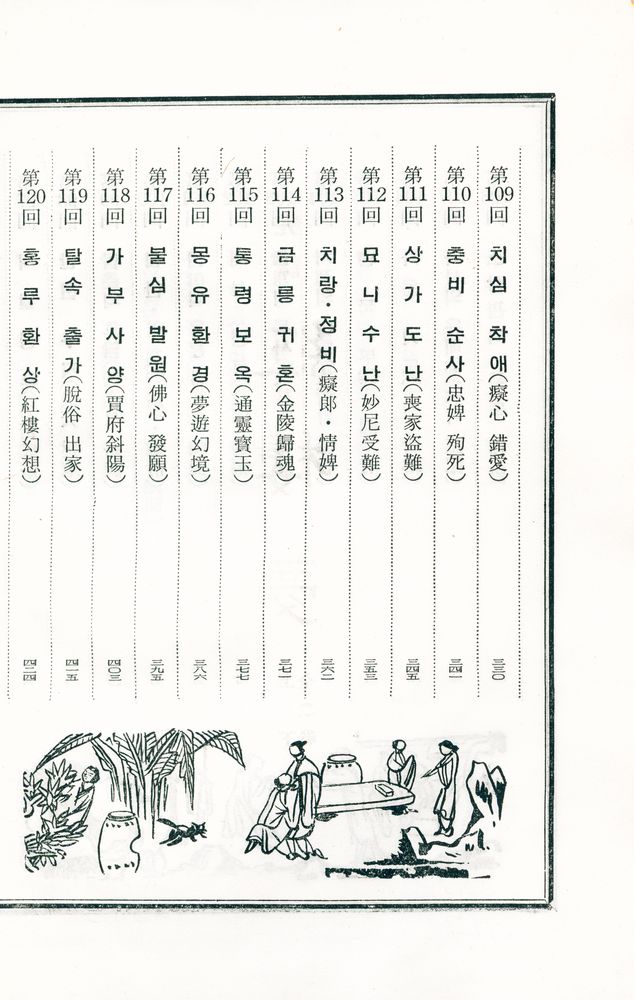 第109回 치심 착애(癡心 錯愛) 三三〇
第110回 충비 순사(忠婢 殉死) 三四一
第111回 상가도난(喪家盜難) 三四五
第112回 묘니수난(妙尼受難) 三五三
第113回 치랑·정비(癡郞·情婢) 三六二
第114回 금릉귀혼(金陵歸魂) 三七一
第115回 통령보옥(通靈寶玉) 三七七
第116回 몽유환경(夢遊幻境) 三八六
第117回 불심 발원(佛心 發願) 三九五
第118回 가부사양(賈府斜陽) 四〇三
第119回 탈속 출가(脫俗 出家) 四一五
第120回 홍루환상(紅樓幻想) 四二四